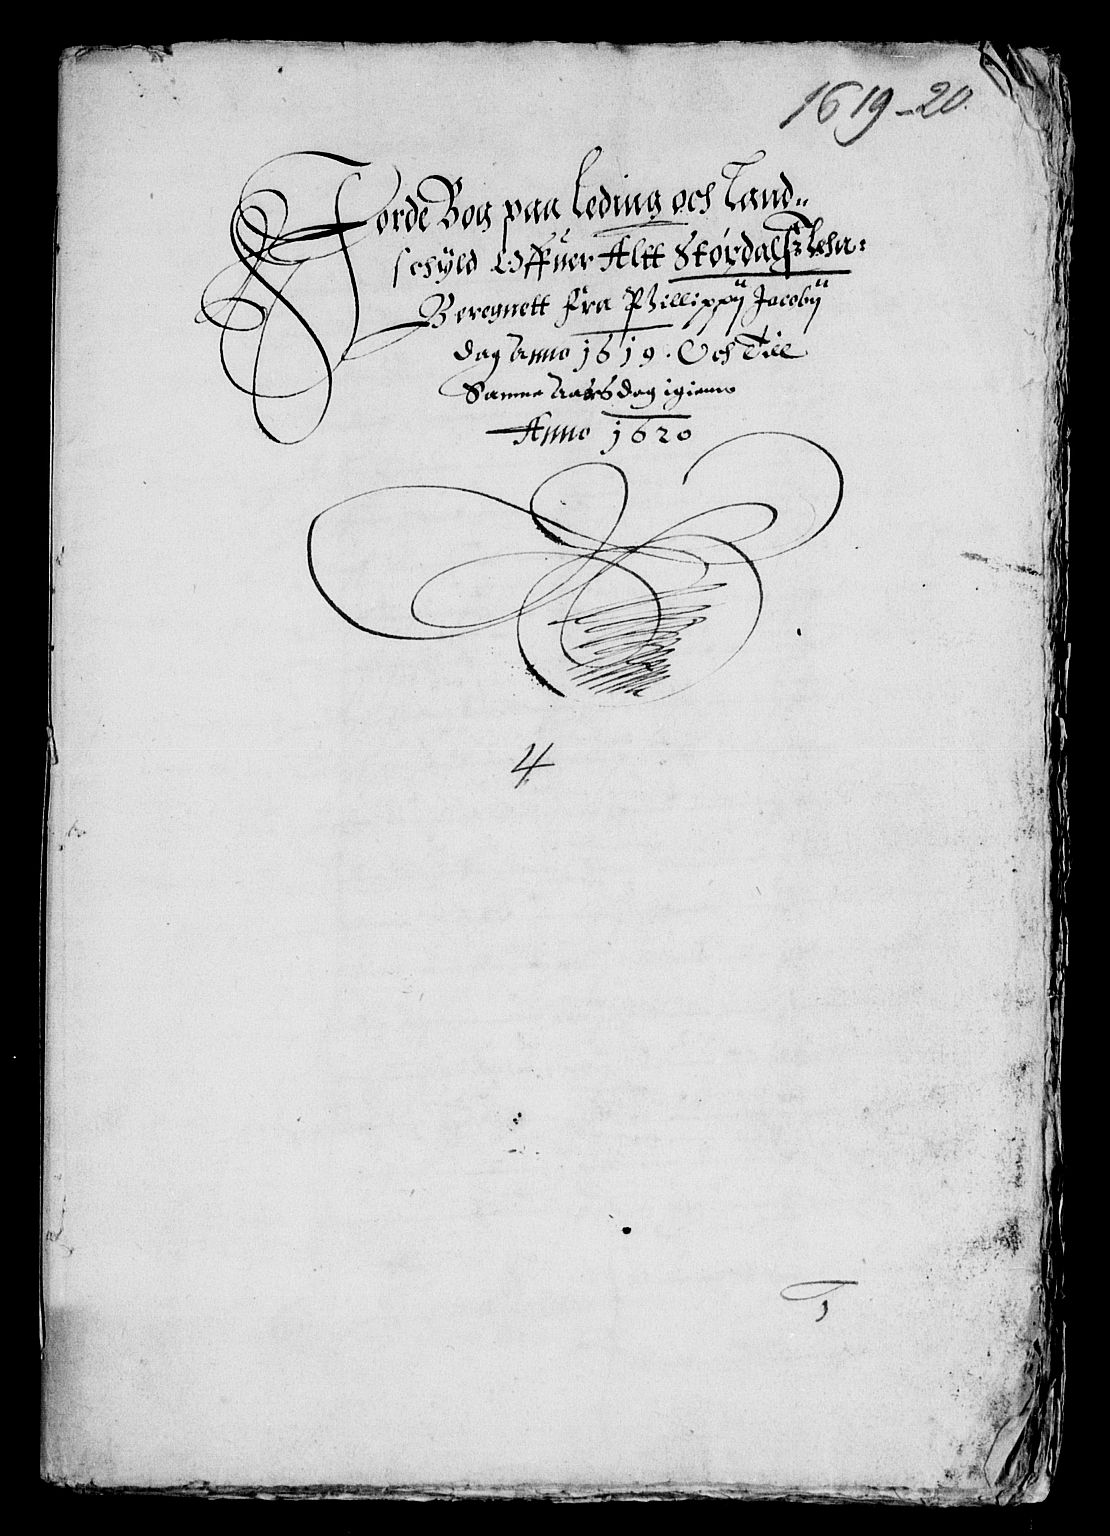 1619-20.
Jorde Bog paa Leding och Land„
schyld Offuer Altt Størdalß Lehn:
Beregnett fra Phillippij Jacobij
dag Anno 1619. Och Till
Samme Aars dag igienn
Anno 1620
4
1